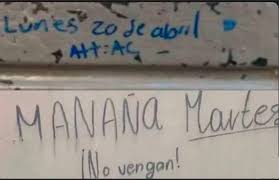 Lunes 20 de abril
Att: AC
MAÑANA Martes
¡No vengan!